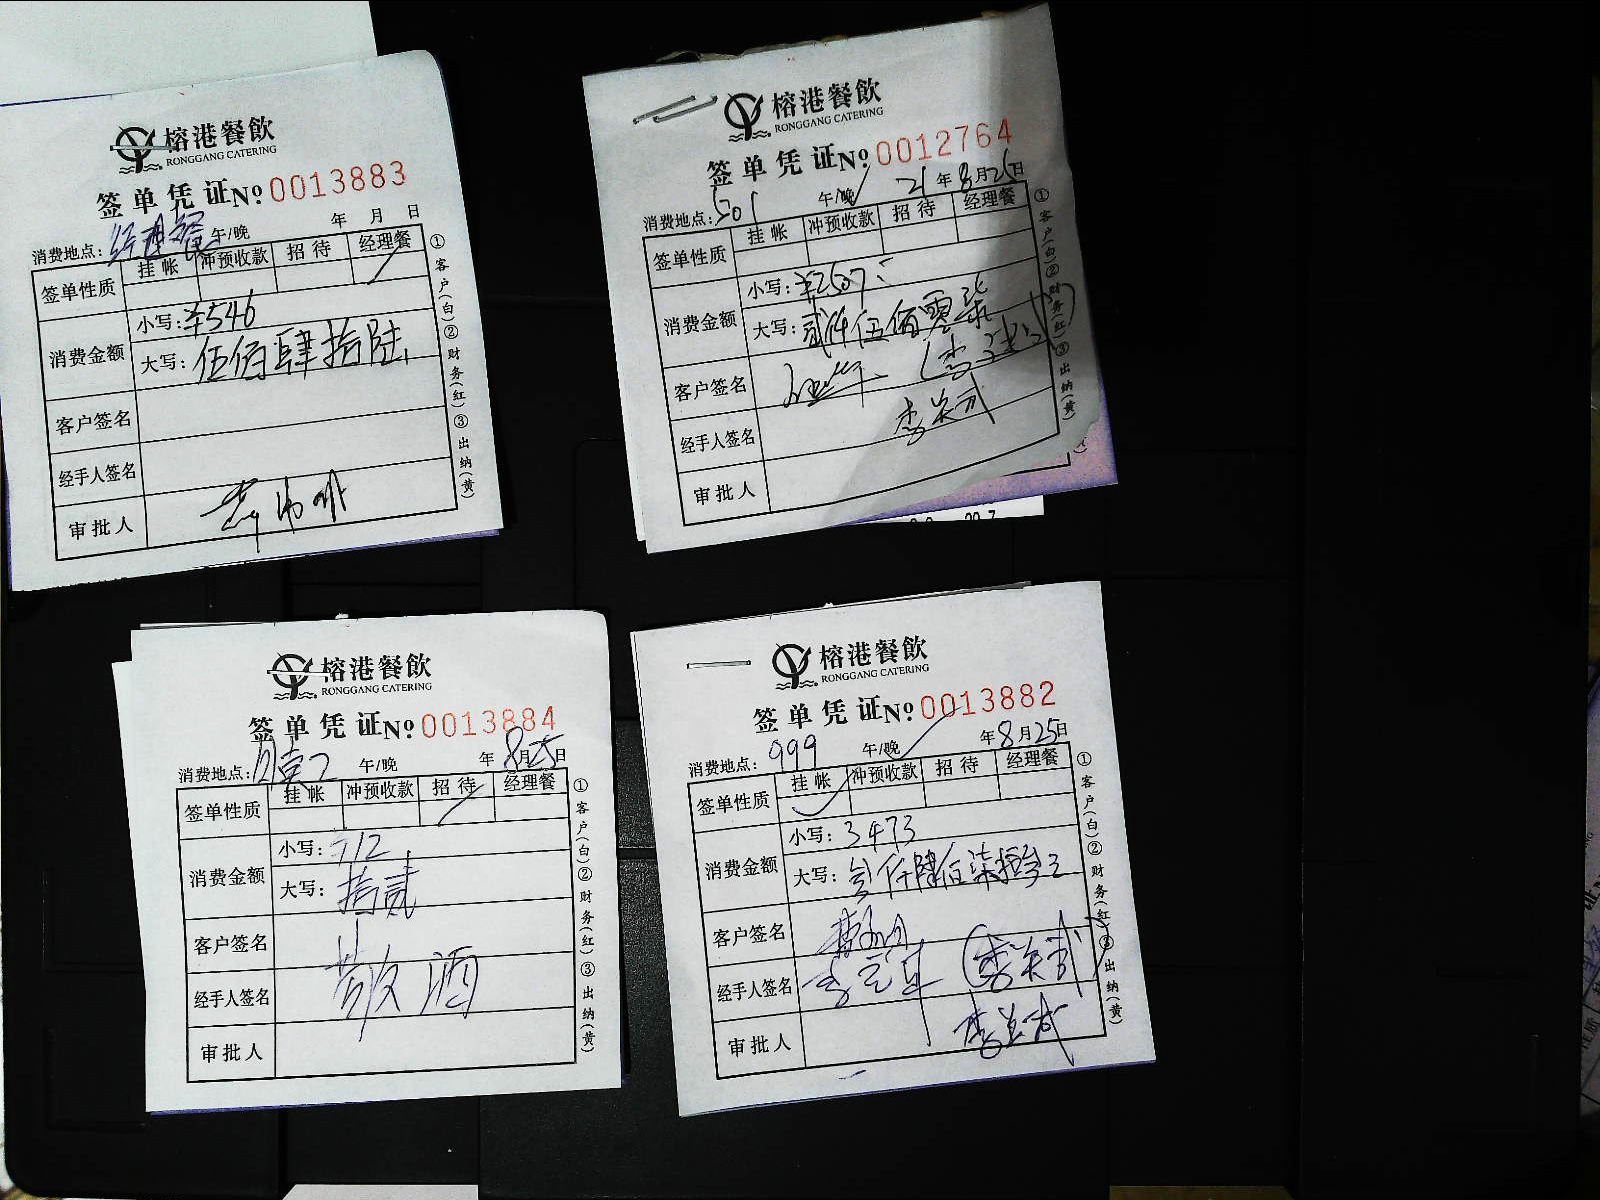 榕港餐飲
RONGGANG CATERING
签单凭证 Nº 0013883
消费地点: 经理餐 午/晚 年 月 日
签单性质 挂帐 冲预收款 招待 经理餐
消费金额 小写: ¥546
大写: 伍佰肆拾陆
客户签名
经手人签名
审批人
①客户(白)②财务(红)③出纳(黄)
榕港餐飲
RONGGANG CATERING
签单凭证 Nº 0012764
消费地点: 501 午/晚 21年8月25日
签单性质 挂帐 冲预收款 招待 经理餐
消费金额 小写: ¥2507
大写: 贰仟伍佰零柒
客户签名
经手人签名
审批人
①客户(白)②财务(红)③出纳(黄)
榕港餐飲
RONGGANG CATERING
签单凭证 Nº 0013884
消费地点: 午/晚 年8月25日
签单性质 挂帐 冲预收款 招待 经理餐
消费金额 小写: 712
大写: 拾贰
客户签名
经手人签名 敬酒
审批人
①客户(白)②财务(红)③出纳(黄)
榕港餐飲
RONGGANG CATERING
签单凭证 Nº 0013882
消费地点: 999 午/晚 年8月25日
签单性质 挂帐 冲预收款 招待 经理餐
消费金额 小写: 3473
大写:
客户签名
经手人签名
审批人
①客户(白)②财务(红)③出纳(黄)